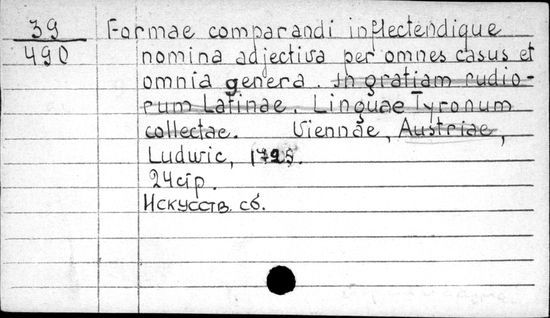 39 Formae comparandi inflectendique
490 nomina adjectiva per omnes casus et
omnia genera. In gratiam rudio-
rum Latinae. Linguae Tyronum
collectae. Viennae, Austriae,
Ludwic,
24 стр.
Искусств. сб.